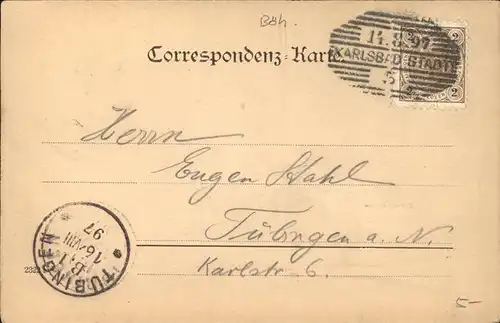 Böh.
Correspondenz-Karte.
14.8.97
KARLSBAD STADT
5
2 2
2 2
Herrn
Eugen Stahl
Tübingen a. N.
Karlstr. 6.
TÜBINGEN
16/VIII
97
5-